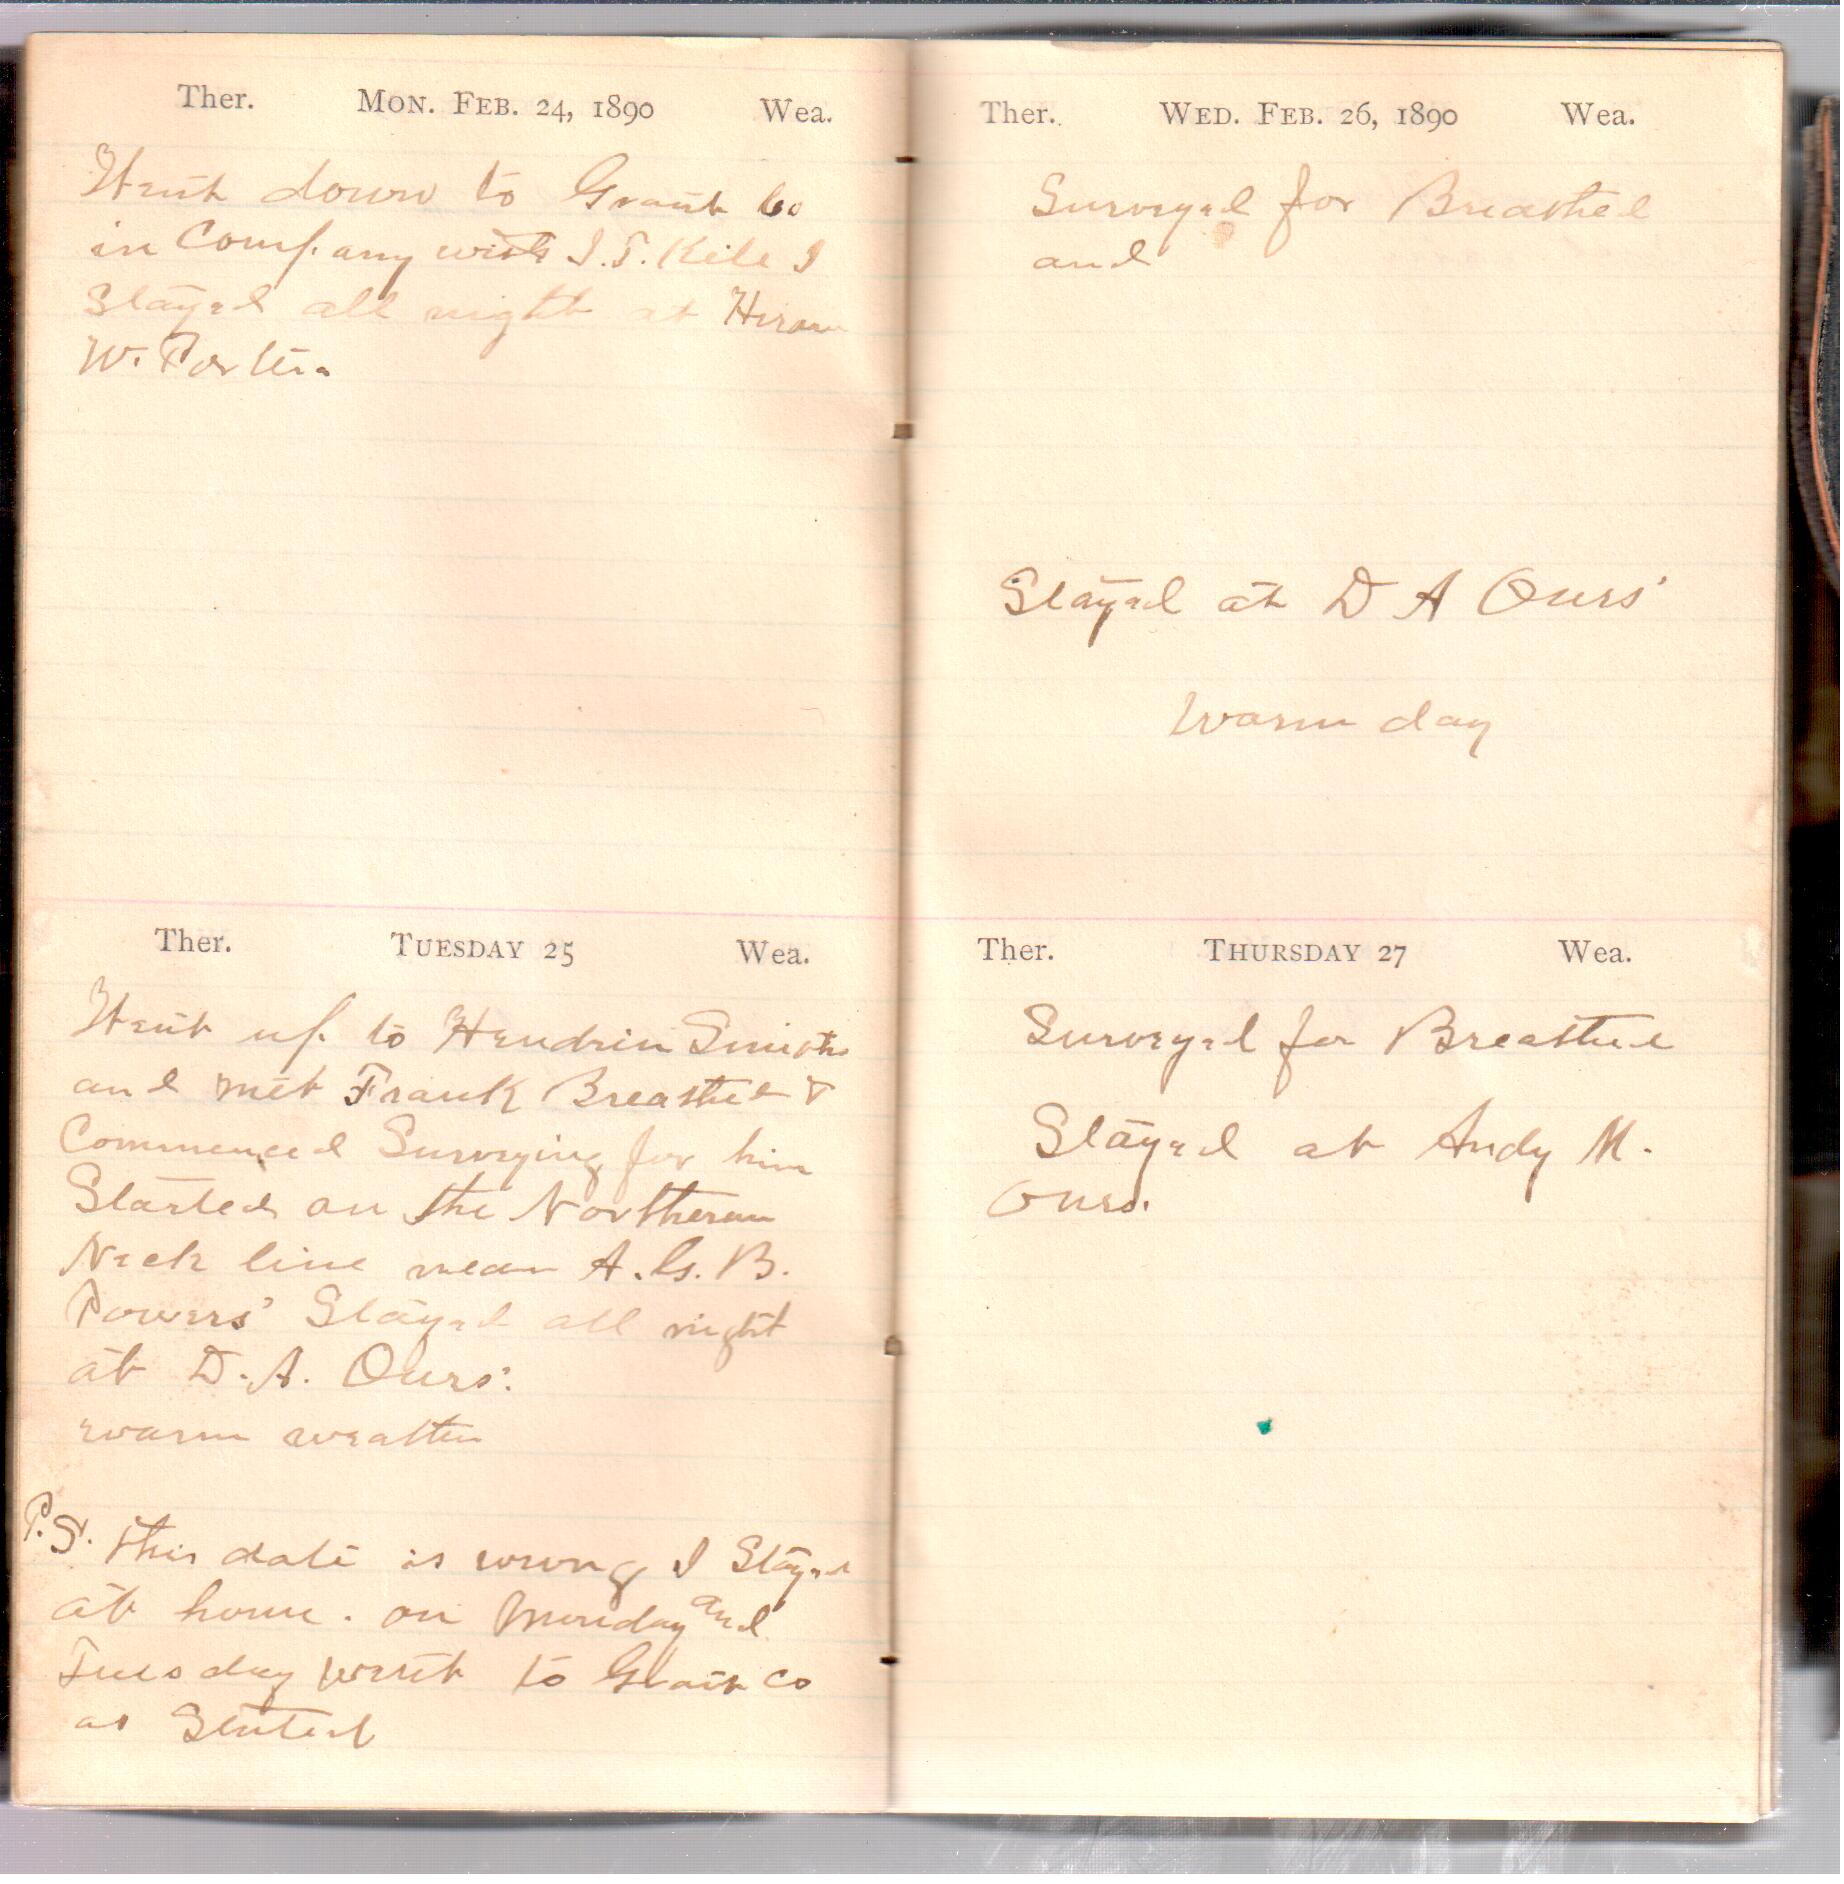 Ther. MON. FEB. 24, 1890 Wea.
Went down to Grant Co
in Company with J.T. Kile I
Stayed all night at Hiram
W. Porters.
Ther. TUESDAY 25 Wea.
Went up to Smiths
and met Frank Breathed &
Commenced Surveying for him
Started on the Northern
Neck line near A. G. B.
Powers' Stayed all night
at D. A. Ours'.
warm weather
P.S. this date is wrong I Stayed
at home. on Monday and
Tuesday went to Grant Co
as Stated
Ther. WED. FEB. 26, 1890 Wea.
Surveyed for Breathed
and
Stayed at D A Ours'
Warm day
Ther. THURSDAY 27 Wea.
Surveyed for Breathed
Stayed at Andy M.
Ours.